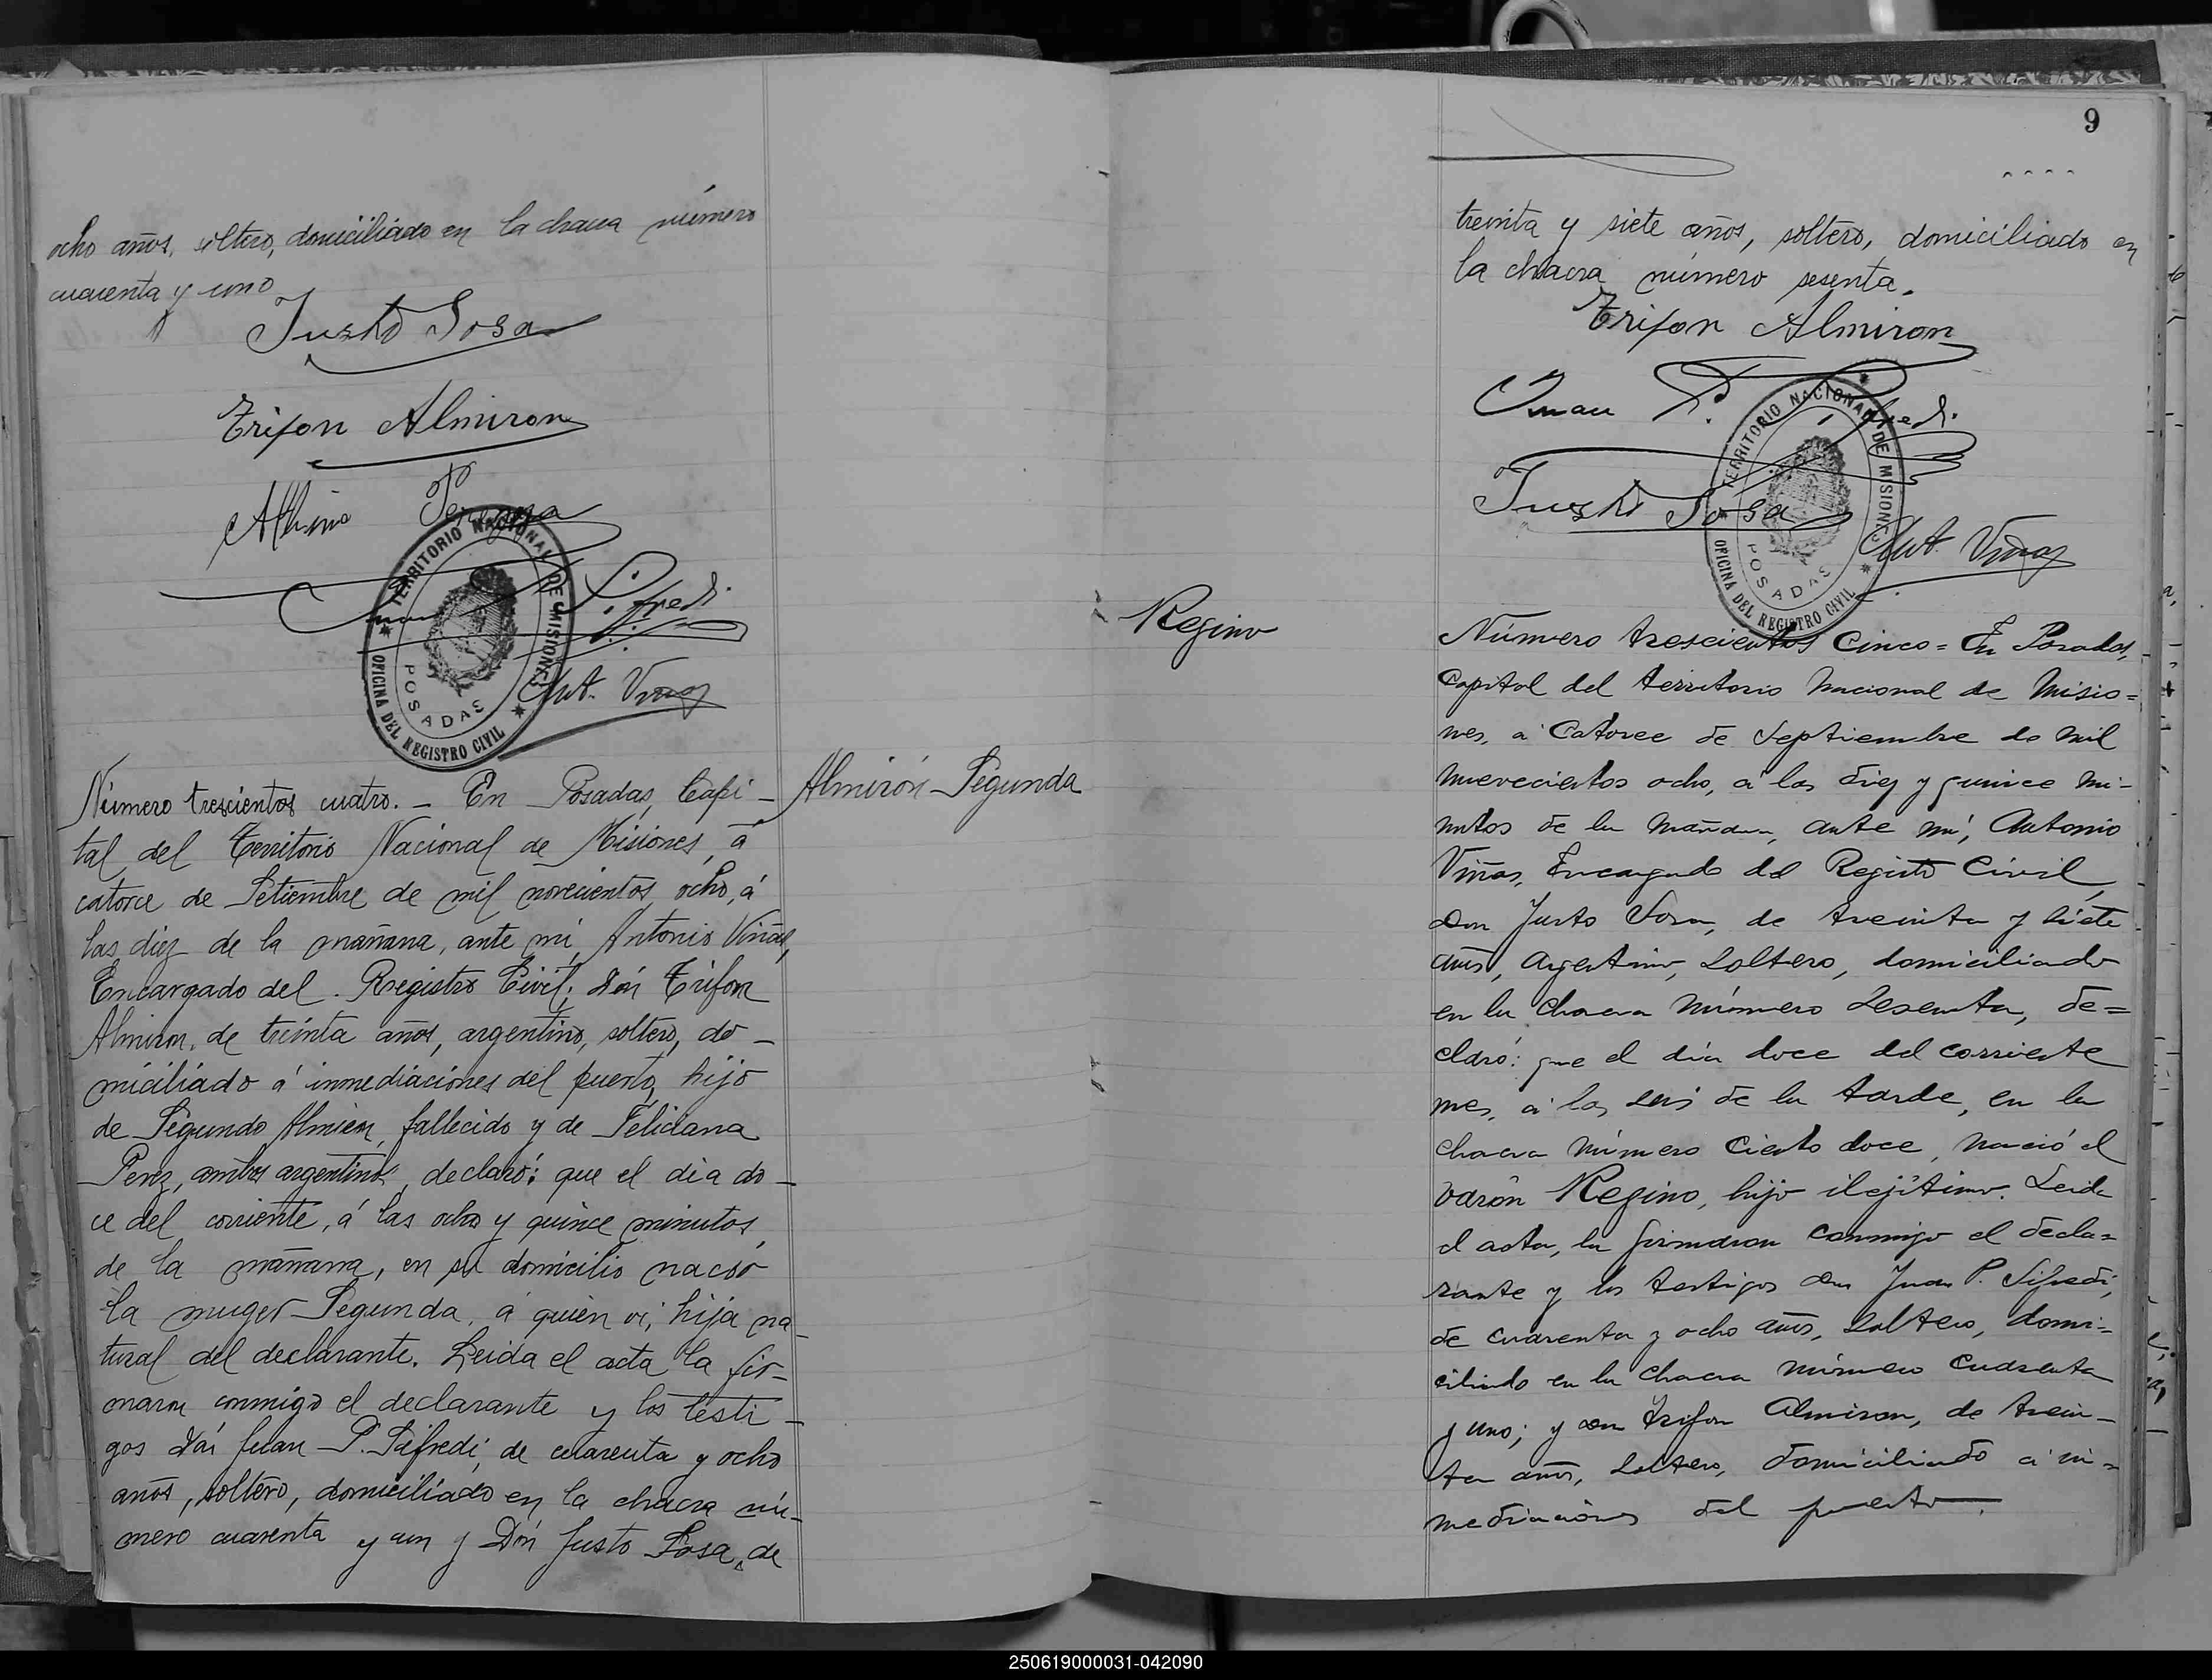 ocho años, soltero, domiciliado en la chacra número
cuarenta y uno
Justo Sosa
Trifon Almiron
Albino
TERRITORIO NACIONAL DE MISIONES
OFICINA DEL REGISTRO CIVIL
POSADAS
Ant. Viñas
Almirón Segunda
Número trescientos cuatro. _ En Posadas, Capi _
tal del Territorio Nacional de Misiones, á
catorce de Setiembre de mil novecientos ocho, á
las diez de la mañana, ante mi, Antonio Viñas,
Encargado del Registro Civil, Don Trifon
Almiron, de treinta años, argentino, soltero, do _
miciliado á inmediaciones del puerto, hijo
de Segundo Almiron, fallecido y de Feliciana
Perez, ambos argentinos, declaró: que el dia do _
ce del corriente, á las ocho y quince minutos
de la mañana, en su domicilio nació
la muger Segunda, á quien vi, hija na _
tural del declarante. Leida el acta la fir _
maron conmigo el declarante y los testi _
gos Don Juan P. Sifredi, de cuarenta y ocho
años, soltero, domiciliado en la chacra nú _
mero cuarenta y un y Don Justo Sosa, de
9
treinta y siete años, soltero, domiciliado en
la chacra número sesenta.
Trifon Almiron
Juan P. Sifredi.
Justo Sosa
Ant. Viñas
TERRITORIO NACIONAL DE MISIONES
OFICINA DEL REGISTRO CIVIL
POSADAS
Regino
Número trescientos Cinco = En Posadas,
Capital del territorio Nacional de Misio=
nes, a Catorce de Septiembre de mil
nuevecientos ocho, á las diez y quince mi-
nutos de la mañana, ante mí, Antonio
Viñas, Encargado del Registro Civil,
don Justo Sosa, de treinta y siete
años, Argentino, Soltero, domiciliado
en la Chacra número Sesenta, de=
claró: que el día doce del corriente
mes, a las seis de la tarde, en la
chacra número Ciento doce, nació el
varón Regino, hijo ilejítimo. Leida
el acta, la firmaron conmigo el decla=
rante y los testigos don Juan P. Sifredi,
de cuarenta y ocho años, Soltero, domi-
ciliado en la Chacra número Cuarenta
y uno; y don Trifon Almiron, de trein-
ta años, Soltero, domiciliado a in-
mediaciones del puerto.
250619000031-042090